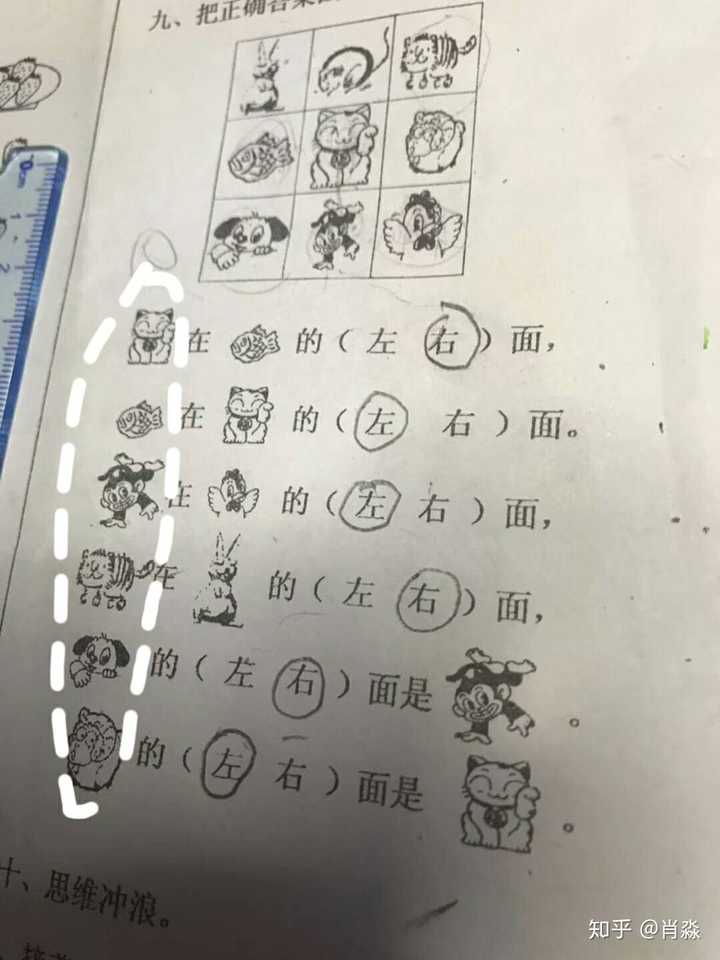 九、把正确答案
在 的（左 右）面，
在 的（左 右）面。
在 的（左 右）面，
在 的（左 右）面，
的（左 右）面是 。
的（左 右）面是 。
十、思维冲浪。
知乎 @肖淼